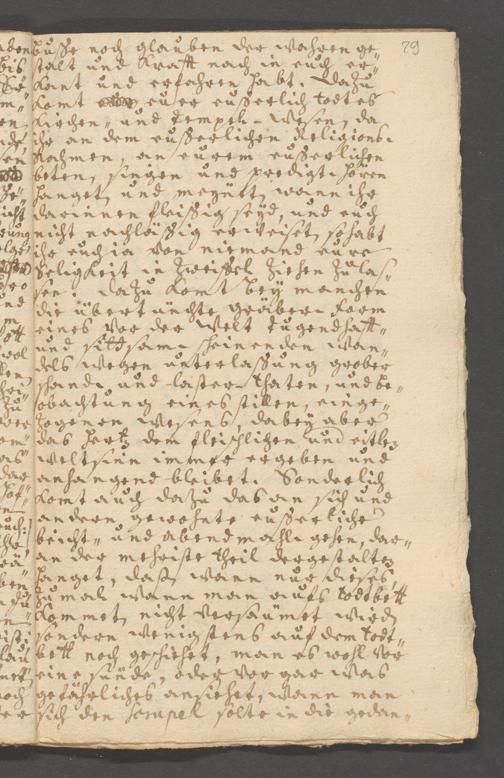 79
busse noch glauben der wahren ge-
stalt und Krafft nach in euch er-
kant und erfahren habt. Dazu
komt euer eusserlich todtes
Kirchen- und tempel-wesen, da
ihr an dem eusserlichen Religions-
Nahmen, an eurem eusserlichen
beten, singen und predigt hören
hanget, und meynet, wann ihr
darinnen fleissig seyd, und euch
nicht nachlässig erweiset, so habt
ihr euch ja von niemand eure
Seligkeit in Zweiffel ziehen zu las-
sen. Dazu komt bey manchen
die übertünchte gräber Form
eines vor der welt tugendhafft-
und sittsam scheinenden wan-
dels wegen unterlassung grober
schand und laster thaten, und be-
obachtung eines stillen, einge-
zogenen wesens, dabey aber
das hertz dem fleischlichen und eitlen
weltsinn immer ergeben und
anhangend bleibet. Sonderlich
komt auch dazu das an sich und
andern gewohnte eusserliche
beicht- und abendmahl gehen, dar-
an der meheiste theil dergestalten
hanget, dass wann nur dieses,
zumal wann man aufs todtbett
kommet, nicht versäumet wird
sondern wenigstens auf dem todt-
bett noch geschiehet, man es wohl vor
eine sünde, oder vor gar was
gefährliches ansiehet, wann man
sich den scrupel solte in die gedan-